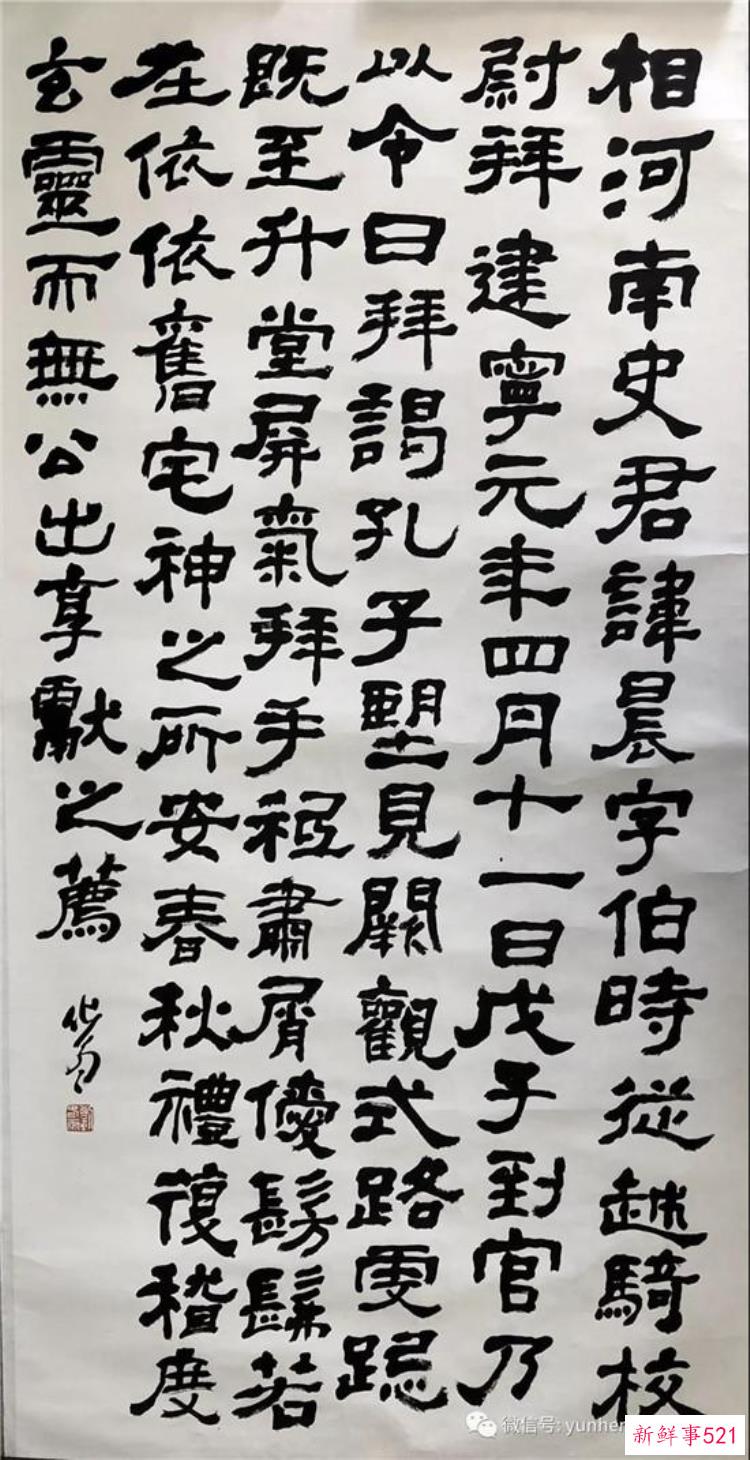 相河南史君諱晨字伯時從越騎校
尉拜建寧元年四月十一日戊子到官乃
以令日拜謁孔子望見闕觀式路虔跽
既至升堂屏氣拜手祗肅屑僾髣髴若
在依依舊宅神之所安春秋禮復稽度
玄靈而無公出享獻之薦
微信号: yunhe
新鲜事521